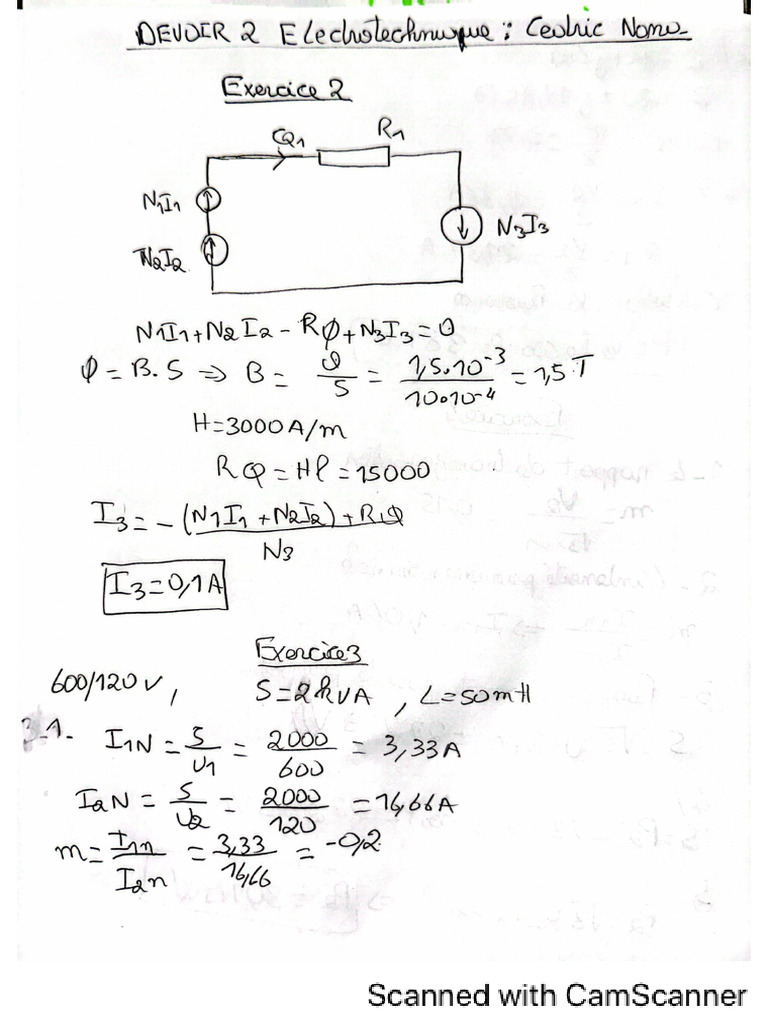 DEVOIR 2 Electrotechnique : Cedric Nomo
Exercice 2
CQ1 R1
N1I1
N2I2
N3I3
N1I1 + N2I2 - Rφ + N3I3 = 0
φ = B.S ⇒ B = φ/S = 1,5.10^-3 / 10.10^-4 = 1,5 T
H = 3000 A/m
Rφ = Hl = 15000
I3 = - (N1I1 + N2I2) + R1φ / N3
I3 = 0,1 A
Exercice 3
600/120 V, S = 2kVA, L = 50mH
3-1. I1N = S/U1 = 2000/600 = 3,33 A
I2N = S/U2 = 2000/120 = 16,66 A
m = I1n/I2n = 3,33/16,66 = -0,2
Scanned with CamScanner